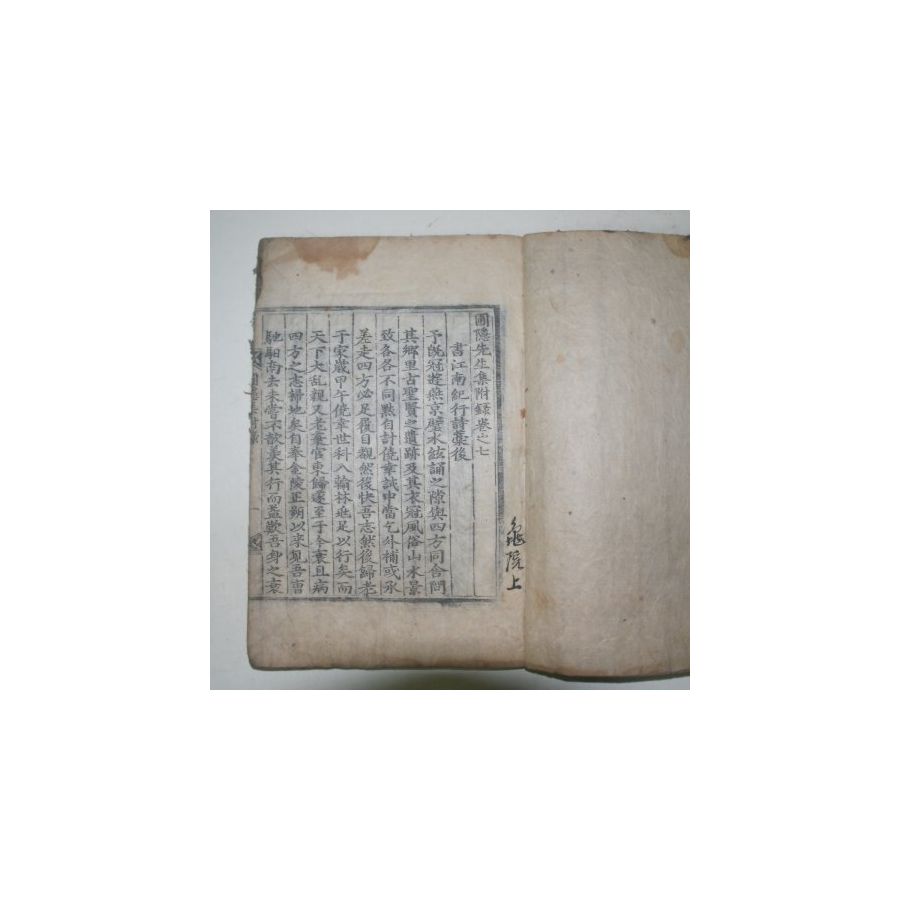 圃隱先生集附錄卷之七
書江南紀行詩藁後
予旣冠遊燕京璧水絃誦之隙與四方同舍問
其鄉里古聖賢之遺跡及其衣冠風俗山水景
致各各不同黙自計僥幸誠中當乞外補或承
差走四方必足履目覩然後快吾志然後歸老
于家歲甲午僥幸世科入翰林進足以行矣而
天下大乱親又老棄官東歸遂至于今衰且病
四方之志掃地矣自奉金陵正朔以来見吾曺
馳驅南去未嘗不歆羡其行而盖歎吾身之衰
龜院上